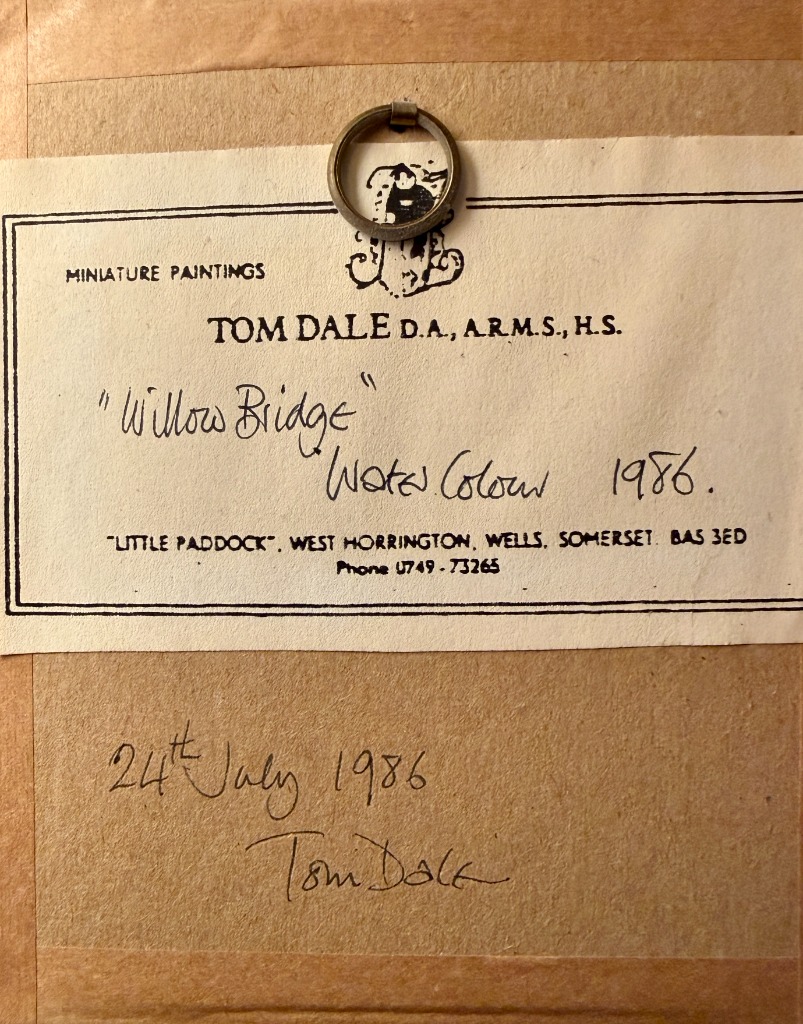 MINIATURE PAINTINGS
TOM DALE D.A., A.R.M.S., H.S.
"Willow Bridge"
Water Colour 1986.
"LITTLE PADDOCK", WEST HORRINGTON, WELLS, SOMERSET. BA5 3ED
Phone 0749 - 73265
24th July 1986
Tom Dale